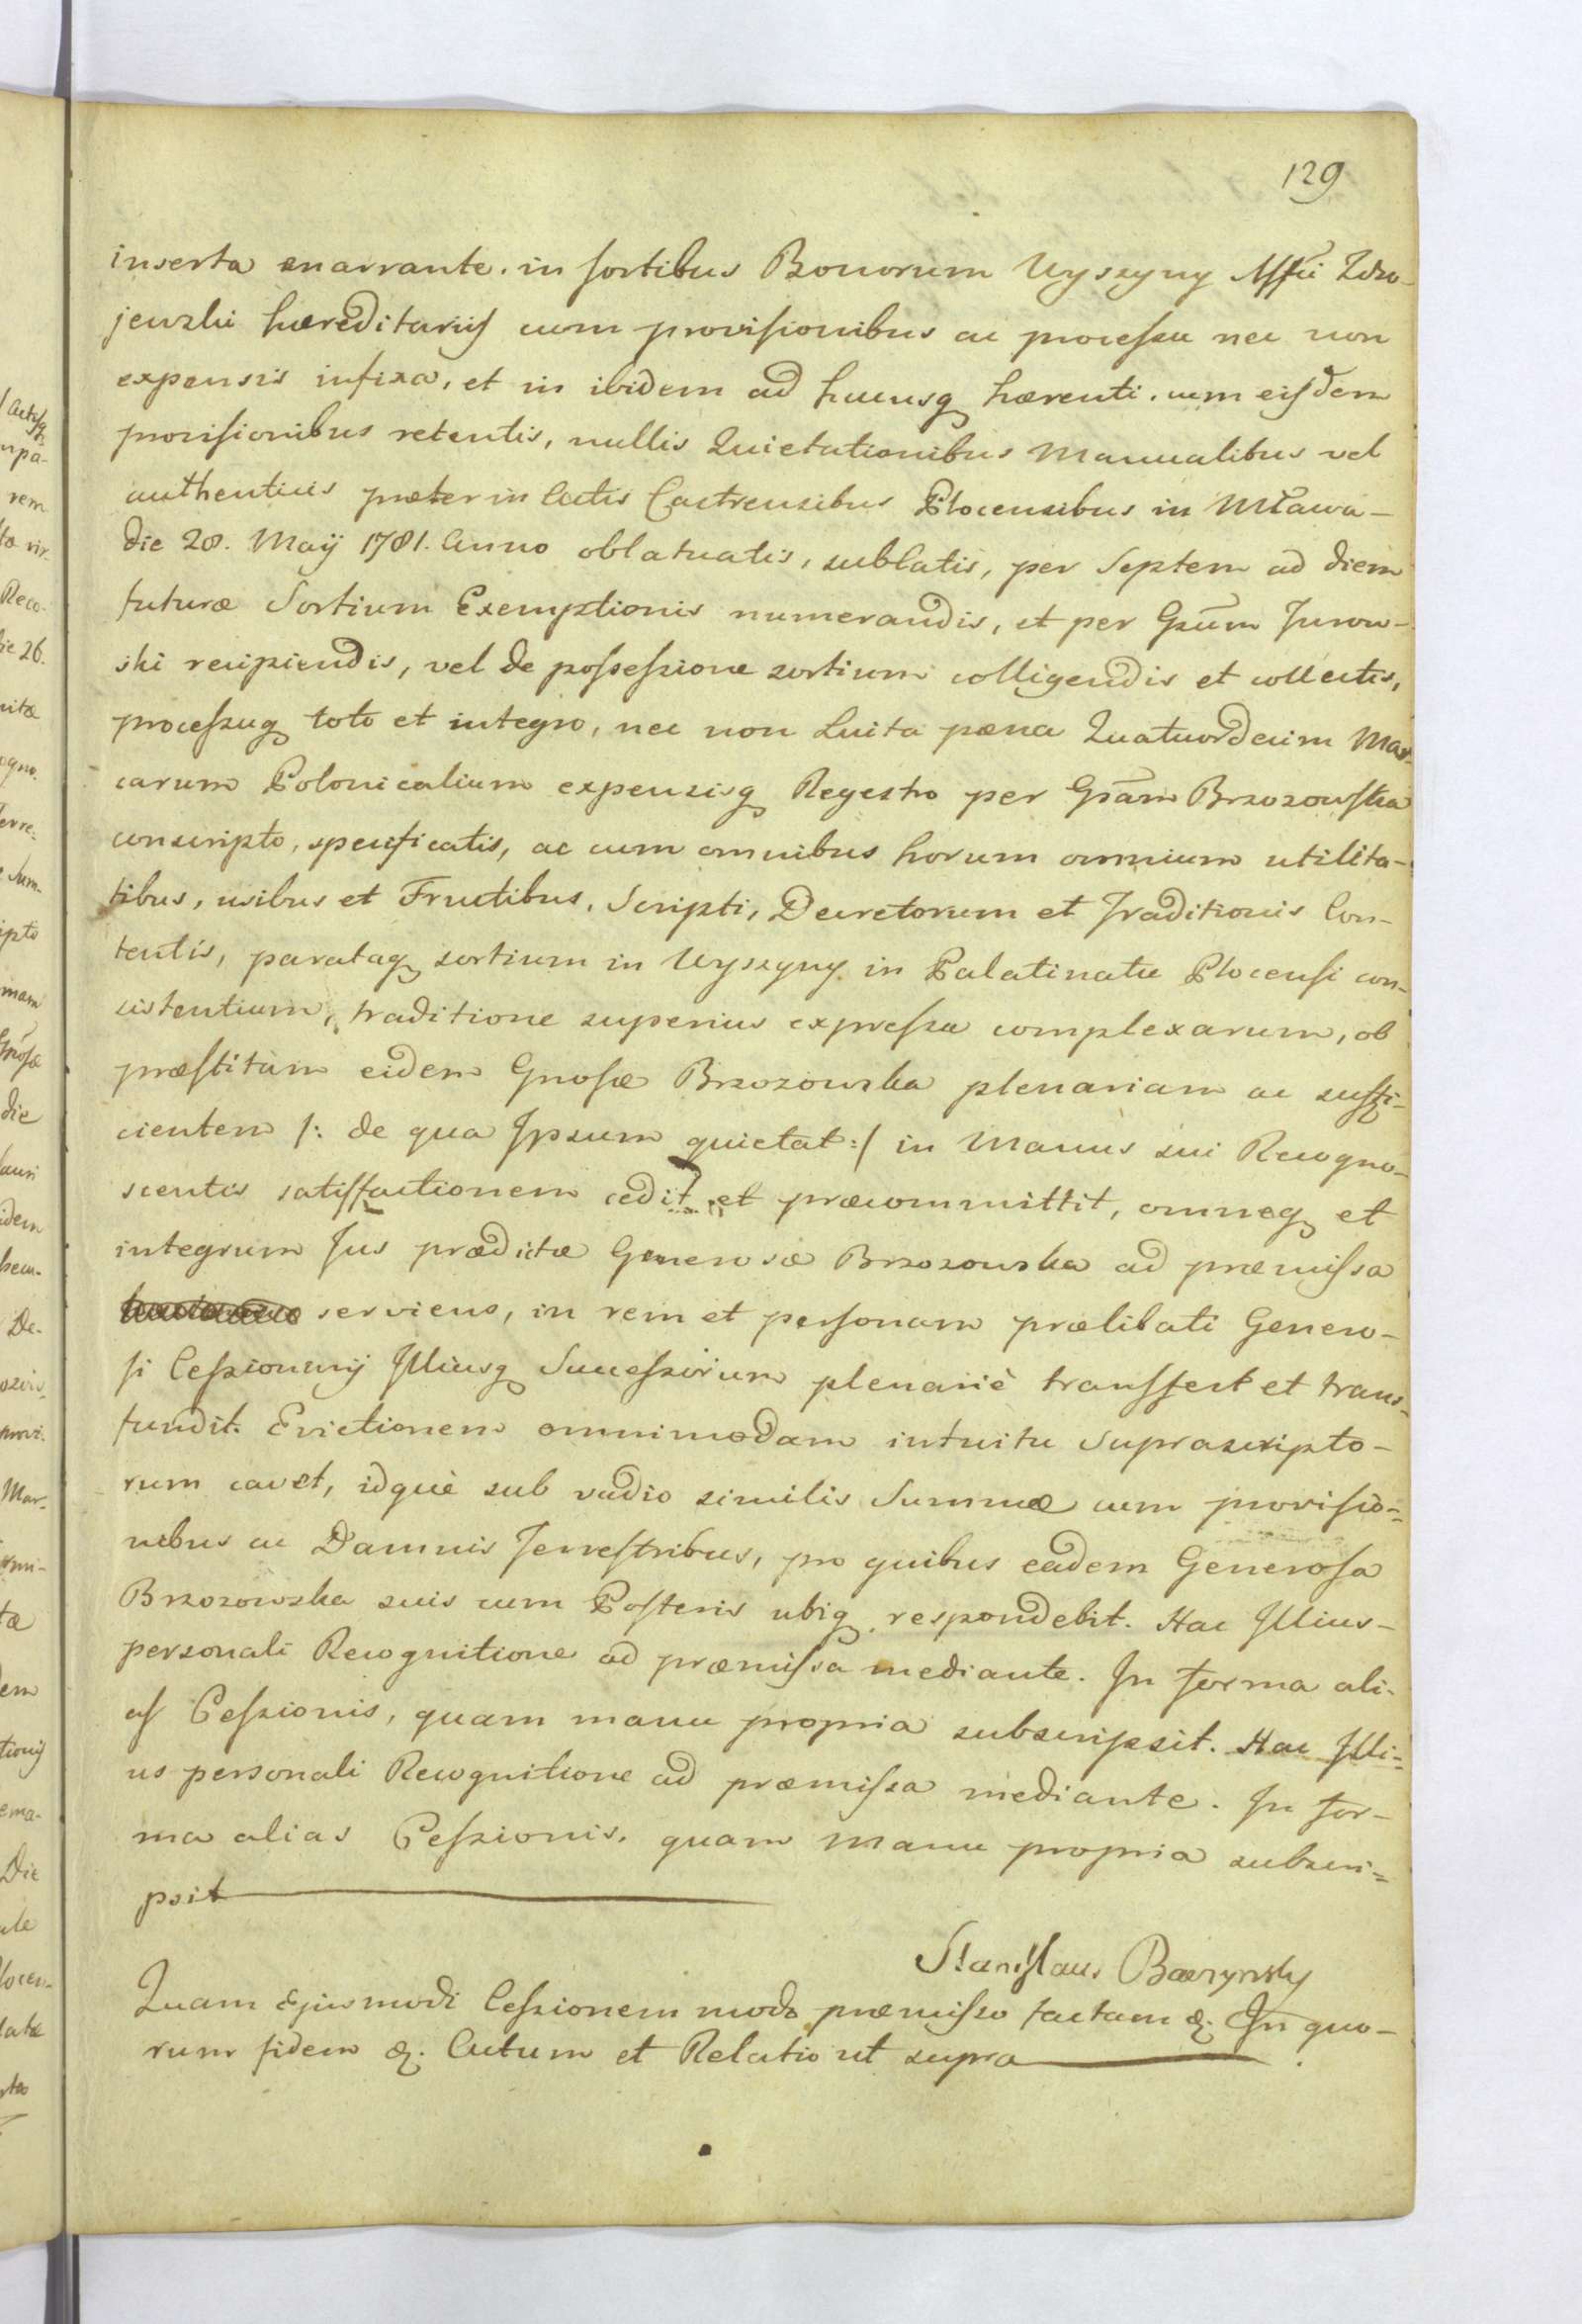 129
inserta enarrante. in sortibus Bonorum Wyszyny Msfci Zdzo-
jewski hæreditarijs cum provisionibus ac processu nec non
expensis infixa, et in ibidem ad hucusq hærenti. cum eisdem
provisionibus retentis, nullis Quietationibus Manualibus vel
authenticis præter in Actis Castrensibus Plocensibus in Mława-
die 28. Maÿ 1781. Anno oblatuatis, sublatis, per Septem ad diem
futuræ Sortium Exemptionis numerandis, et per Gsum Jurow-
ski recipiendis, vel de possessione sortium colligendis et collectis,
processuq toto et integro, nec non Luita pæna Quatuordecim Mar-
carum Polonicalium expensisq Regestro per Gsam Brzozowska
conscripto, specificatis, ac cum omnibus horum omnium utilita-
tibus, usibus et Fructibus, Scripti, Decretorum et Traditionis Con-
tentis, parataq sortium in Wyszyny in Palatinatu Plocensi con-
sistentium, traditione superius expressa complexarum, ob
præstitam eidem Gnosæ Brzozowska plenariam ac suffi-
cientem /: de qua Ipsum quietat :/ in Manus sui Recogno-
scentis satisfactionem cedit et præcommittit, omneq et
integrum Jus prædictæ Generosæ Brzozowska ad præmissa
serviens, in rem et personam prælibati Genero-
si Cessionarij Illiusq Successorum plenariè transfert et trans-
fundit. Evictionem omnimodam intuitu Suprascripto-
rum cavet, idquè sub vadio similis Summæ cum provisio-
nibus ac Damnis Terrestribus, pro quibus eadem Generosa
Brzozowska suis cum Posteris ubiq respondebit. Hac Illius-
personali Recognitione ad præmissa mediante. In forma ali-
as Cessionis, quam manu propria subscripsit. Hac Illi-
us personali Recognitione ad præmissa mediante. In for-
ma alias Cessionis. quam manu propria subscri-
psit
Stanislaus
Quam Ejusmodi Cessionem modo præmisso factam &. In quo-
rum fidem &. Actum et Relatio ut supra